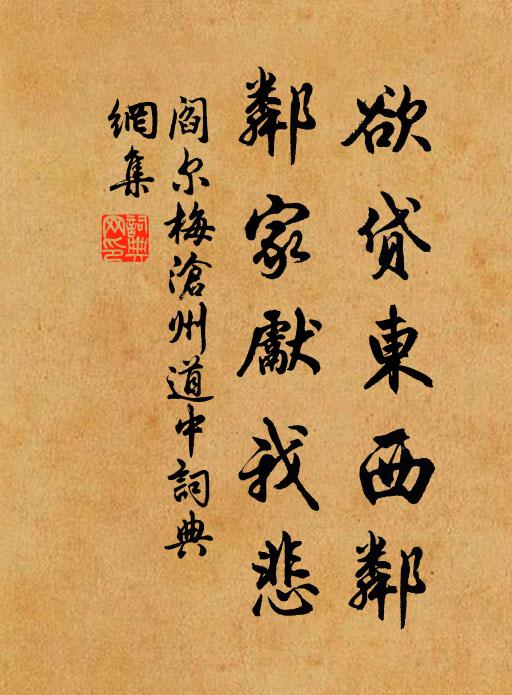 欲貸東西鄰
鄰家獻我悲
阎尔梅滄州道中詞典
網集
詞典网印